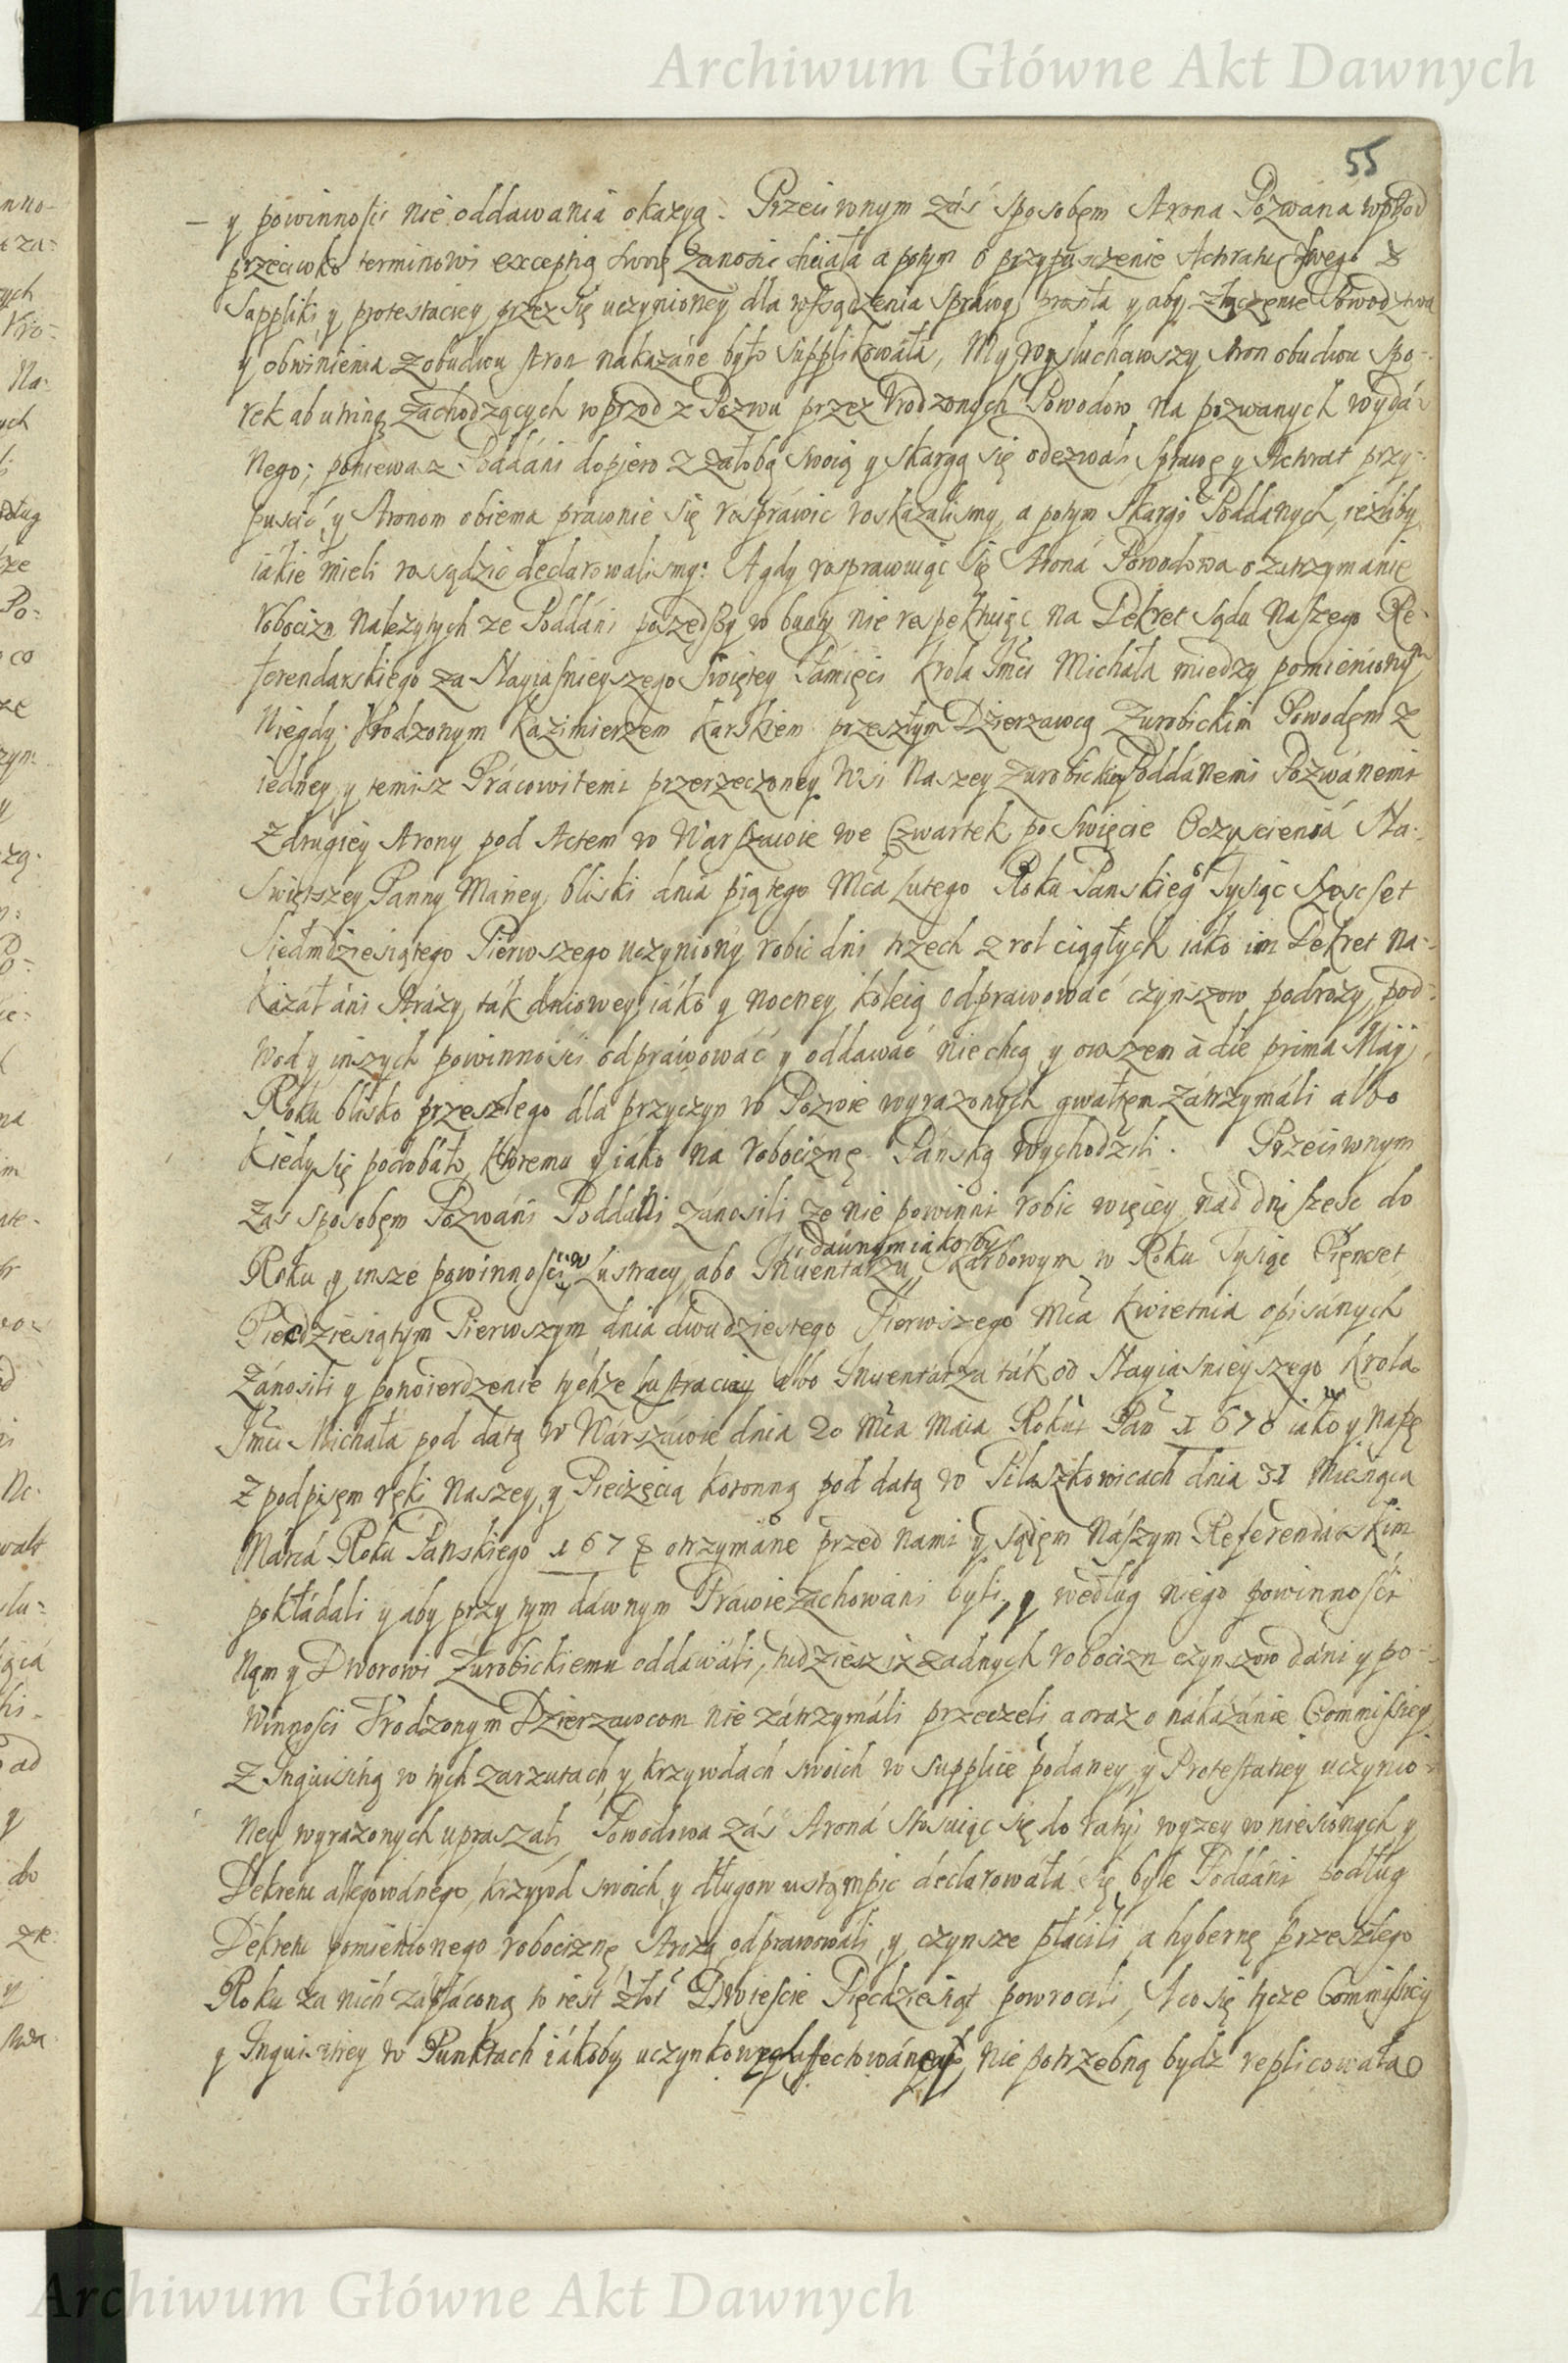 Archiwum Główne Akt Dawnych
55
y powinności nie oddawania okazyą. Przeciwnym záś sposobęm strona Pozwana wprzod
przeciwko terminowi exceptią swoię zanosić chciała a potym o przypuszczenie Actoratu swego z
Suppliki y protestaciey przez się uczynioney dla rossądzenia sprawy prosiła y aby złączenie Powodztwa
y obwinienia z obudwu stron nakazáne było supplikowała, My wysłuchawszy stron obudwu spo-
rek ab utrinq zachodzących wprzod z Pozwu przez Vrodzonych Powodow na pozwanych wydá-
nego; poniewasz Poddáni dopiero z załobą swoią y skargą się odezwali sprawę y Actorat przy-
puścić y stronom obiema prawnie się rosprawic roskazalismy, a potym skargi Poddanych ieżliby
iákie mieli rosądzić declarowalismy. A gdy rosprawuiąc się strona Powodowa o zatrzymanie
robocizn należytych ze Poddáni poszedszy w bunty nie respektuiąc na Dekret sądu naszego Re-
ferendarskiego za Nayiaśnieyszego Swiętey Pámięci Krola Jmci Michała miedzy pomienionym
niegdy Vrodzonym Kazimierzem Karskiem przeszłym Dzierzawcą Zurobickim Powodęm z
iedney y temisz Prácowitemi przerzeczoney Wsi naszey Zurobickiey Poddánemi Pozwánemi
z drugiey strony pod Actem w Warszawie we Czwartek po Swięcie Oczyscieniá Na-
swiętszey Panny Maryey bliski dnia piątego Mca lutego Roku Pańskiego Tysiąc szescset
Siedmdziesiątego Pierwszego uczyniony robic dni trzech z rol ciągłych iako im Dekret na-
kázał áni stráży ták dniowey iáko y nocney koleią odprawować czynszow podrozy pod-
wod y inszych powinnosci odpráwować y oddawać niechcą y owszem à die prima Maij
Roku blisko przeszłego dla przyczyn w Pozwie wyrazonych gwałtęm zátrzymáli albo
kiedy się podobáło ktoremu y iáko ná robociznę Páńską wychodzili. Przeciwnym
zas sposobęm Pozwáni Poddáni zánosili ze nie powinni robic więcey nad dni szesc do
Roku y insze powinności w Lustracy abo Inuentarzu dáwnym iakoby skarbowym w Roku Tysiąc Pięncset
Piecdziesiątym Pierwszym dnia dwudziestego Pierwszego Mca Kwietnia opisánych
zánosili y ponowierdzenie tychże lustraciey albo Inuentarza ták od Nayiasnieyszego Krola
Jmci Michałá pod datą w Wárszáwie dnia 20 Mca Maia Roku Pań 1670 iáko y nasżę
z podpisęm ręki naszey y Pieczęcią koronną pod datą w Pilaszkowicach dnia 31 Miesiąca
Marca Roku Pańskiego 167 otrzymáne przed nami y sądem nászym Referendarskim
pokładali y aby przy tym dáwnym Práwie zachowáni byli, y według niego powinności
nąm y Dworowi Zurobickiemu oddawáli, tudziesz iz zadnych robocizn czynszow dáni y po-
winności Vrodzonym Dzierzawcom nie zátrzymáli przeczeli a oraz o nákázánie Commissiey
z Inquisitią w tych zarzutach y krzywdach swoich w supplice podaney y Protestatiey uczynio-
ney wyrazonych upraszali, Powodowa záś stroná stosuiąc się do ratij wyzey wniesionych y
Dekretu allegowánego, krzywd swoich y długow ustąmpic declarowała się byle Poddáni podług
Dekretu pomienionego robociznę, strożą odprawowali y czynsze płácili a hybernę przeszłego
Roku za nich zápłáconą to iest złoł Dwieście Pięcdziesiąt powrocili, A co się tycze Commissiey
y Inquisitiey w Punktach iákoby uczynkow nie potrzebną bydz replicowała
Archiwum Główne Akt Dawnych